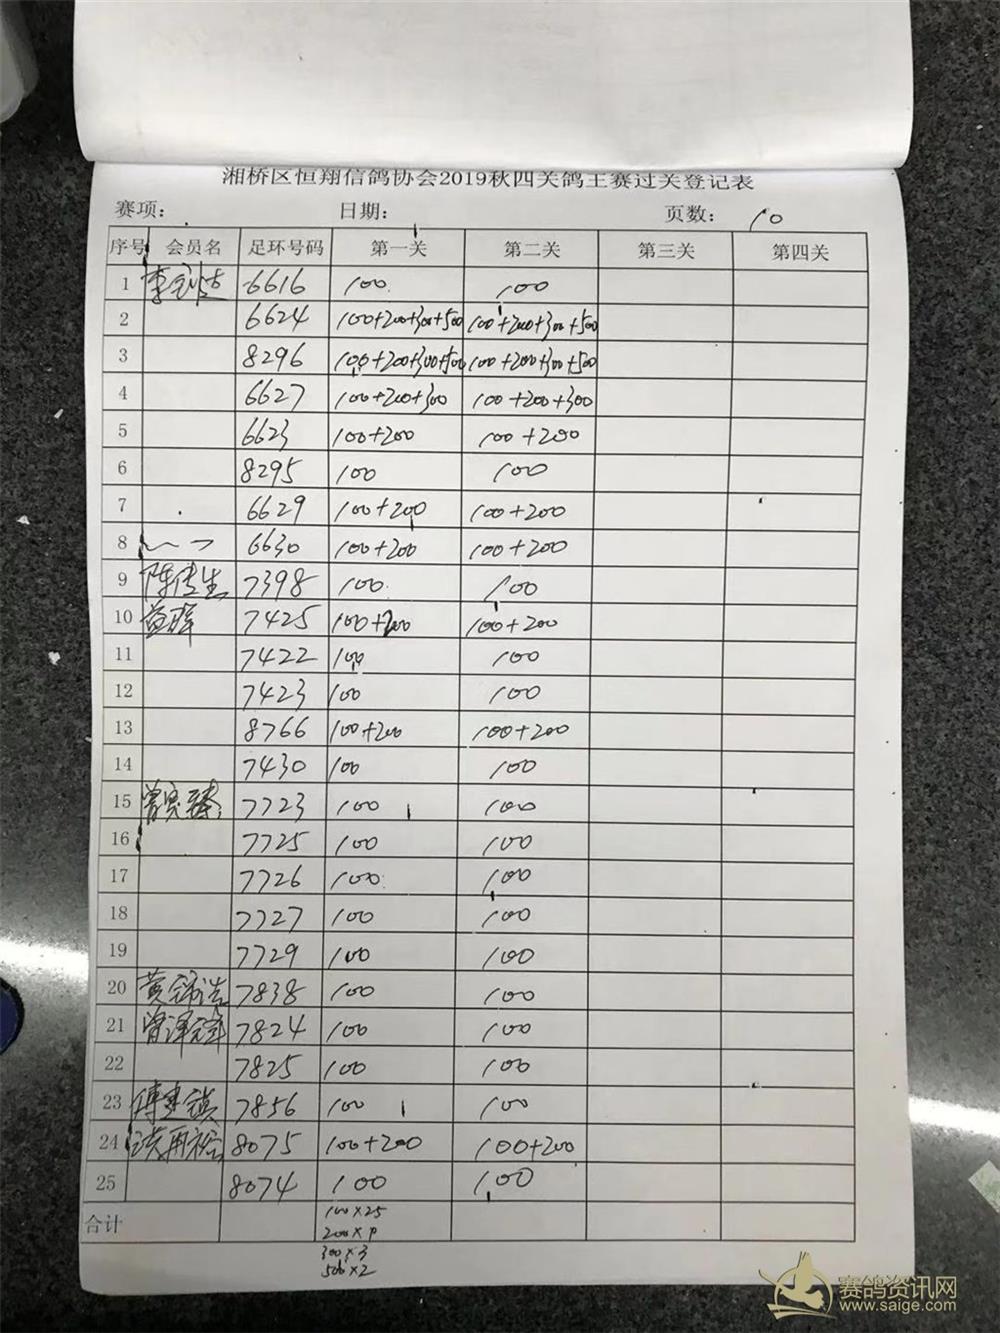 湘桥区恒翔信鸽协会2019秋四关鸽王赛过关登记表
赛项: 日期: 页数: 10
序号 会员名 足环号码 第一关 第二关 第三关 第四关
1 6616 100 100
2 6624 100+200+300+500 100+200+300+500
3 8296 100+200+300+500 100+200+300+500
4 6627 100+200+300 100+200+300
5 6623 100+200 100+200
6 8295 100 100
7 6629 100+200 100+200
8 6630 100+200 100+200
9 陈传生 7398 100 100
10 7425 100+200 100+200
11 7422 100 100
12 7423 100 100
13 8766 100+200 100+200
14 7430 100 100
15 7723 100 100
16 7725 100 100
17 7726 100 100
18 7727 100 100
19 7729 100 100
20 7838 100 100
21 7824 100 100
22 7825 100 100
23 7856 100 100
24 8075 100+200 100+200
25 8074 100 100
合计 100×25
200×9
300×3
500×2
赛鸽资讯网
www.saige.com